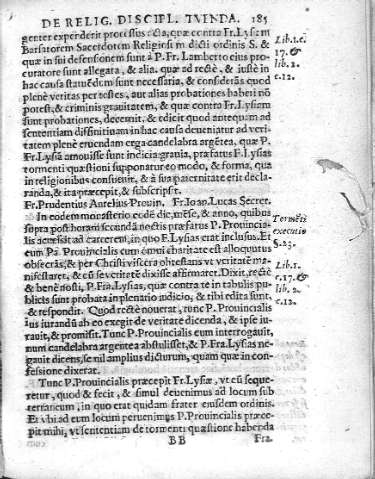 DE RELIG. DISCIPL. TVENDA. 185
genter expenderit processus acta, quæ contra Fr. Lysiam
Barsatorem Sacerdotem Religiosum dicti ordinis S. &
quæ in sui defensionem sunt à P. Fr. Lamberto eius pro-
curatore sunt allegata, & alia. quæ ad rectè, & iustè in
hac causa statuēdum sunt necessaria, & considerās quod
plenè veritas per testes, aut alias probationes haberi nō
potest, & criminis grauitatem, & quæ contra Fr. Lysiam
sunt probationes, decernit, & edicit quod antequam ad
sententiam diffinitiuam in hac causa deueniatur ad veri-
tatem plenè eruendam erga candelabra argētea, quæ P.
Fr. Lysiā amouisse sunt indicia grauia, præfatus F. Lysias
tormenti quæstioni supponatur eo modo, & forma, quæ
in religionibus consueuit, & à sua paternitate erit decla-
randa, & ita præcepit, & subscripsit.
Fr. Prudentius Aurelius Prouin. Fr. Ioan. Lucas Secret.
In eodem monasterio eodē die, mēse, & anno, quibus
supra post horam secundā noctis præfatus P. Prouincia-
lis accessit ad carcerem, in quo F. Lysias erat inclusus. Et
eum Pa. Prouincialis cum omni charitate est alloquutus
obsecrās, & per Christi viscera obtestans vt veritatē ma-
nifestaret, & cū se veritatē dixisse affirmaret. Dixit, rectè
& benè nosti, P. Fra. Lysias, quæ contra te in tabulis pu-
blicis sunt probata in plenario iudicio, & tibi edita sunt,
& respondit. Quod rectè nouerat, tunc P. Prouincialis
ius iurandū ab eo exegit de veritate dicenda, & ipse iu-
rauit, & promisit. Tunc P. Prouincialis eum interrogauit,
num candelabra argentea abstulisset, & P. Fra Lysias ne-
gauit dicens, se nil amplius dicturum, quam quæ in con-
fessione dixerat.
Tunc P. Prouincialis præcepit Fr. Lysiæ, vt eū seque-
retur, quod & fecit, & simul deuenimus ad locum sub
terraneum, in quo erat quidam frater eiusdem ordinis.
Et vbi ad eum locum peruenimus P. Prouincialis præce-
pit mihi, vt sententiam de tormenti quæstione habenda
BB Fra.
Lib. 1. c.
17. &
lib. 2.
c. 12.
Tormēti
executio
§. 23.
Lib. 1.
c. 17. &
lib. 2.
c. 12.